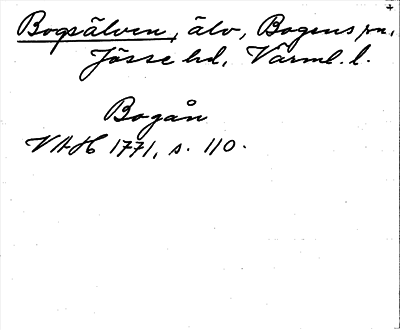 Bogsälven, älv, Bogens sn,
Jösse hd, Värml. l.
Bogån
VAH 1771, s. 110.